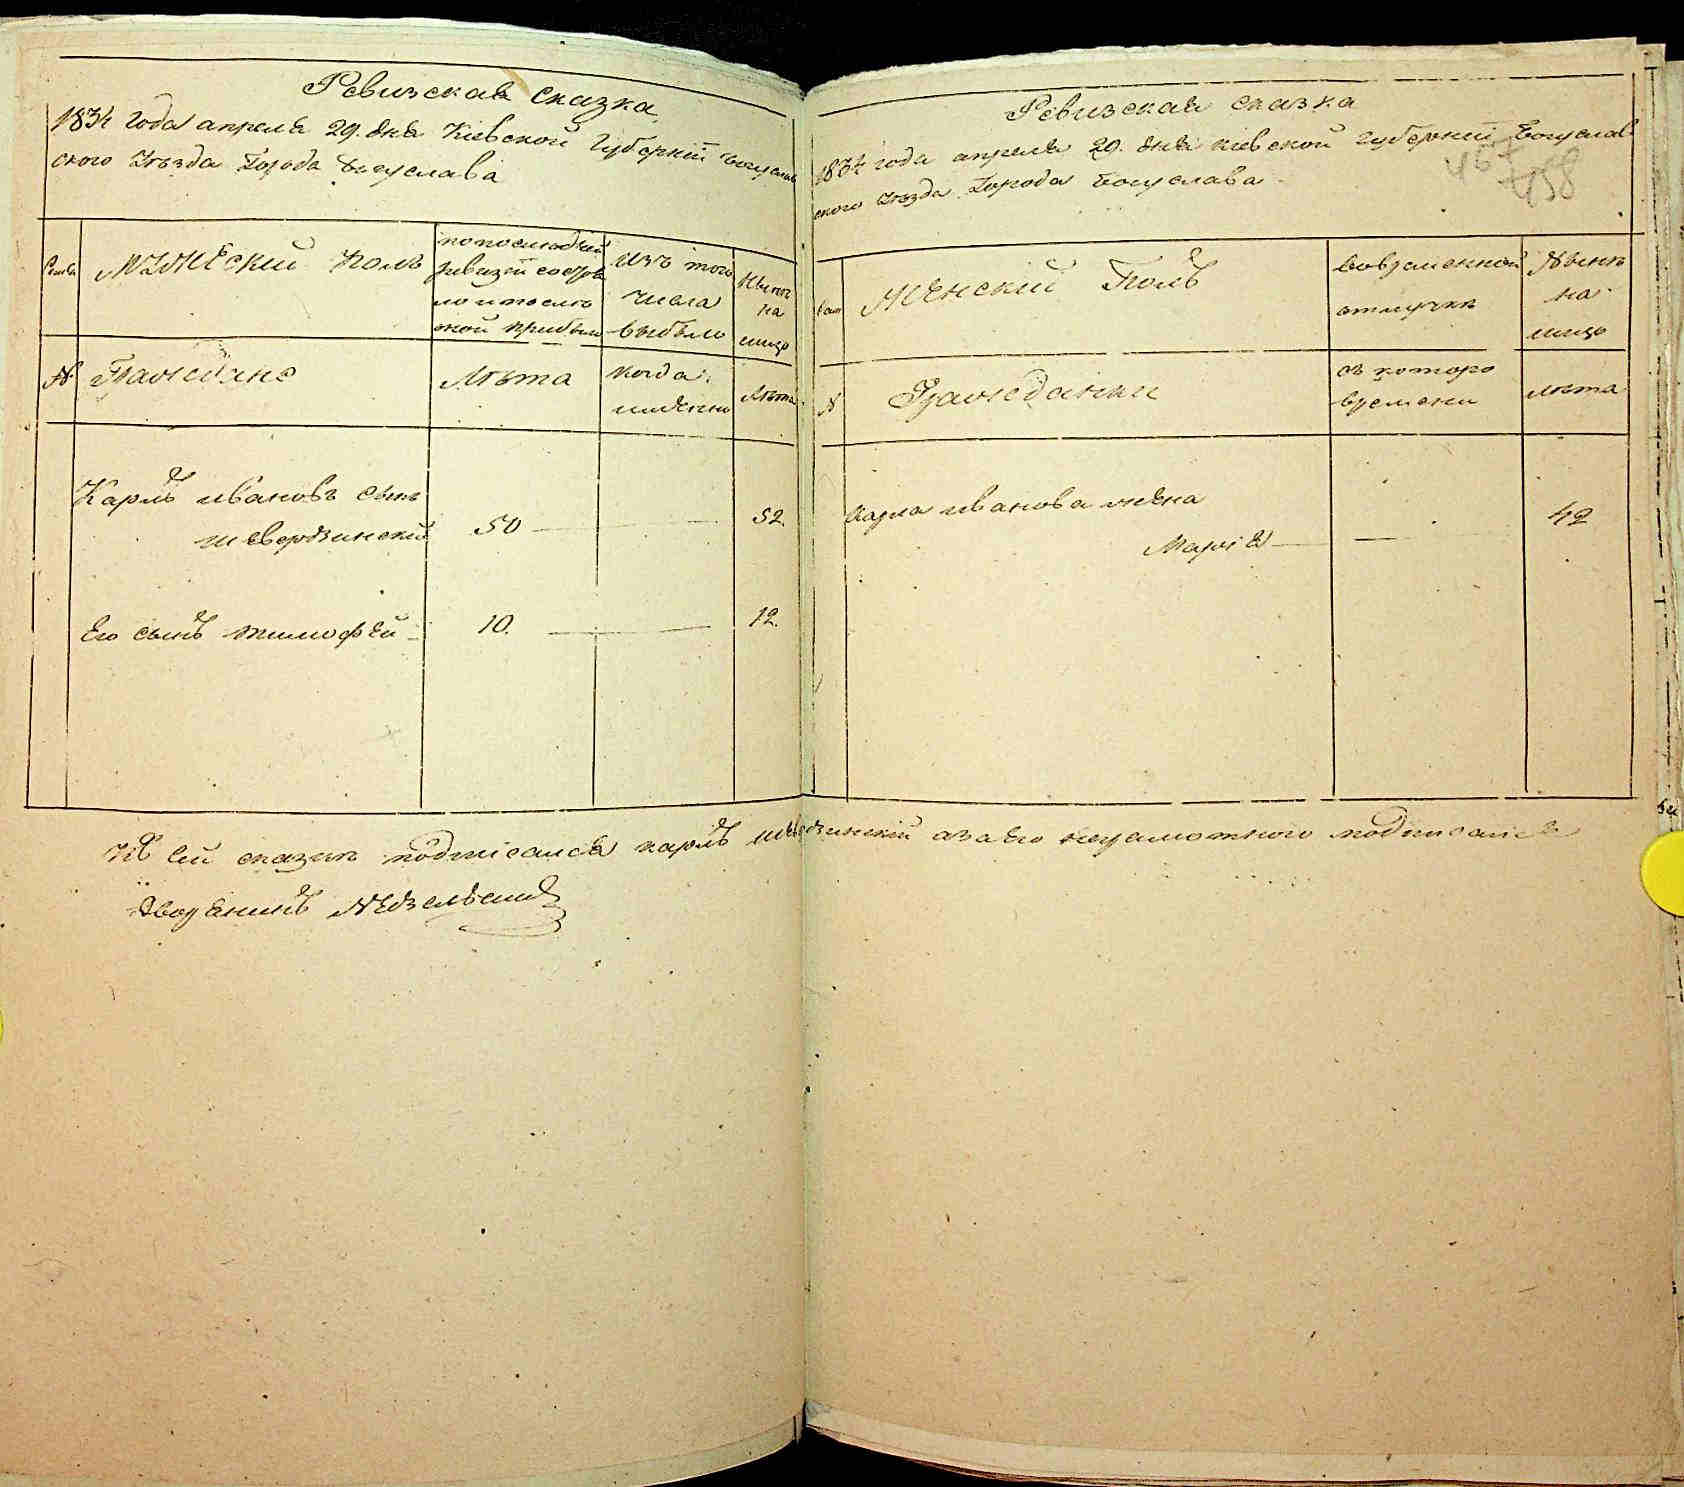 Ревизская сказка
1834 года апреля 29. дня Кіевской Губерніи Богуслав
ского Уѣзда Города Богуслава
Семьи
Мужеский Полъ
по последней
ревизіи состоя
ло и после
оной прибыло
Изъ того
числа
выбыло
Нынѣ
на
лицо
№
Граждане
Лѣта
когда
именно
Лѣта
Карлъ Ивановъ сынъ
Шевердзинский
50
52.
Его сынъ Тимофей
10.
12.
Ревизская сказка
1834 года апреля 29. дня Кіевской Губерніи Богуслав
ского Уѣзда Города Богуслава
467
458
Женский Полъ
Во временной
отлучки
Нынѣ
на
лицо
№
Гражданки
съ которого
времени
лѣта
Карла Иванова жена
Марія
42
К сей сказки подписался Карлъ Шевердзинский а за его неграмотного подписался
Дворянинъ